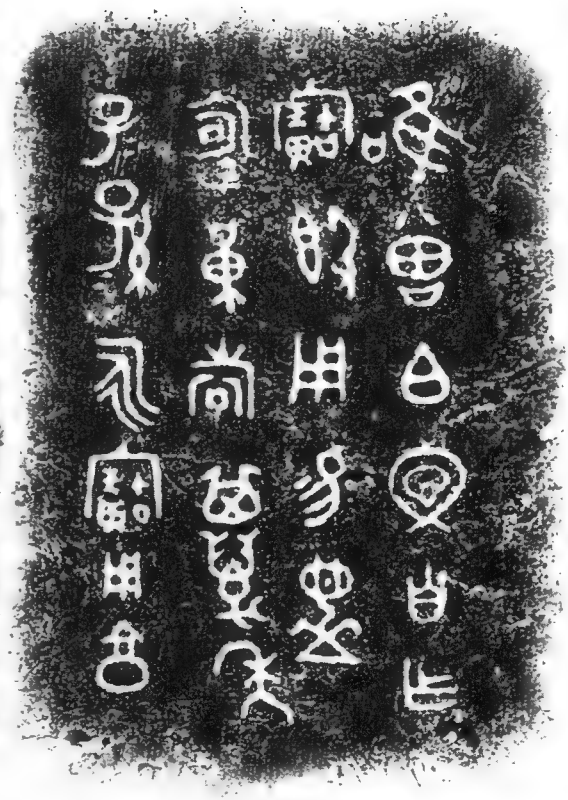 唯曾白文自乍
寶𣪘用易眉
壽黃耇其萬年
子孫永寶用享